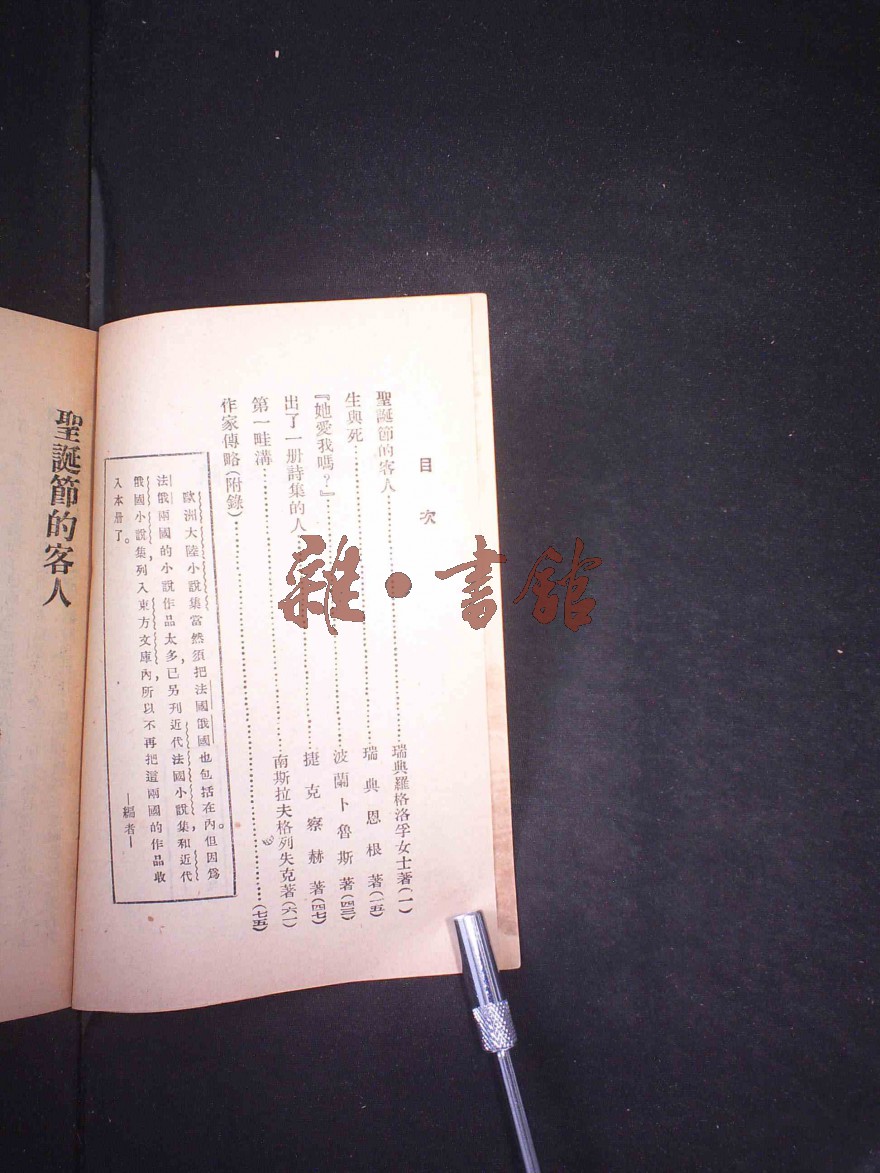 目次
聖誕節的客人…………瑞典羅格洛孚女士著(一)
生與死…………瑞典恩根著(一五)
『她愛我嗎?』…………波蘭卜魯斯著(四三)
出了一册詩集的人…………捷克察赫著(四七)
第一畦溝…………南斯拉夫格列失克著(六一)
作家傳略(附錄)…………(七五)
歐洲大陸小說集當然須把法國俄國也包括在內。但因爲
法俄兩國的小說作品太多,已另列近代法國小說集,和近代
俄國小說集,列入東方文庫內,所以不再把這兩國的作品收
入本册了。
—編者—
聖誕節的客人
雜·書館